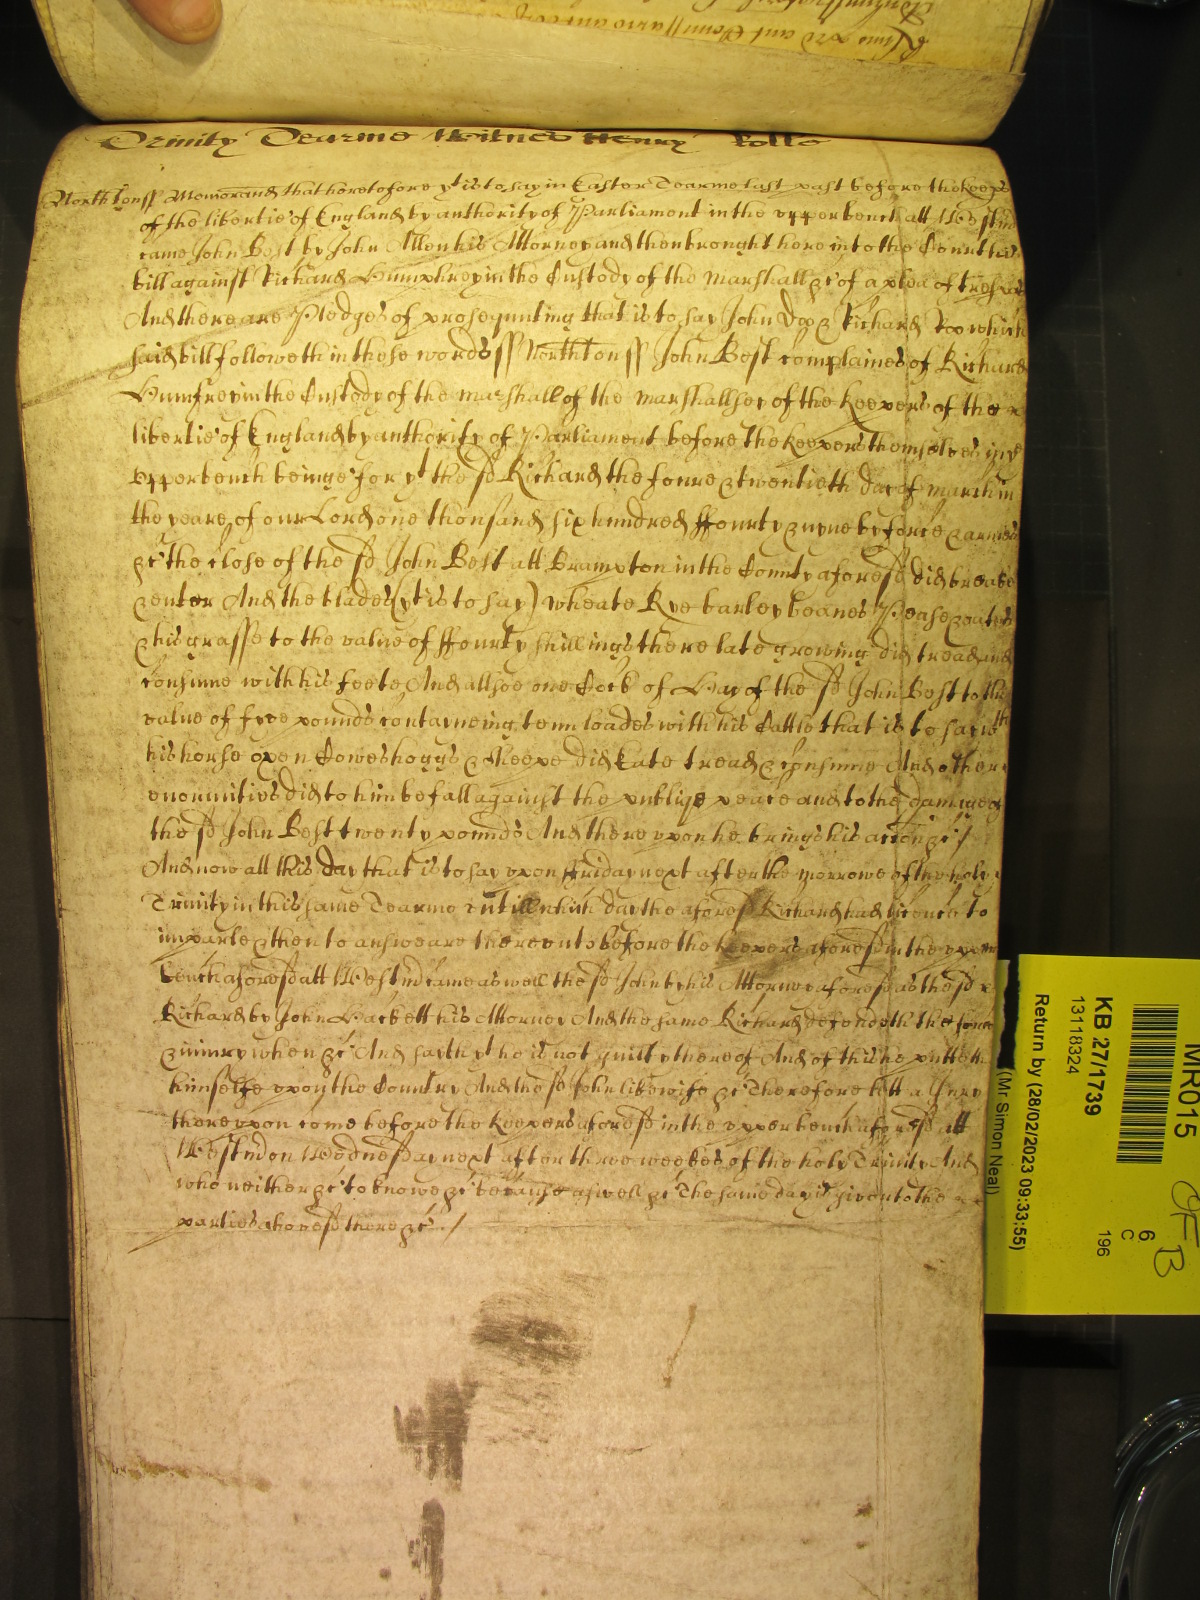 Trinity Tearme Witnes Henry Rolle
North'ton ss Memorand that heretofore yt is to say in Easter Tearme last past before the keeps
of the libertie of England by authority of Parliament in the upper bench att Westm
came John Best by John Allen his Attorney and then brought here into the Court his
bill against Richard Humphrey in the Custody of the Marshall &c of a plea of trespas
And there are Pledges of prosequuting that is to say John Doo & Richard Roo which
said bill followeth in these words ss North'ton ss John Best complaines of Richard
Humfrey in the Custody of the Marshall of the Marshallsey of the keepers of the
libertie of England by authority of Parliament before the keepers themselves in ye
upper bench beinge for yt the sd Richard the foure & twentieth day of March in
the yeare of our Lord one thousand six hundred ffourty & nyne by force & armes
&c the close of the sd John Best att Brampton in the County aforesd did breake
& enter And the blades (yt is to say) wheate Rye barley beanes Pease & oates
& his grasse to the value of ffourty shillings there late growing did tread and
consume with his feete And allsoe one Cock of Hay of the sd John Best to the
value of five pounds contayneing tenn loades with his Cattle that is to say wth
his horse oxen Cowes hoggs & sheepe did Eate tread & consume And other
enormities did to him befall against the publiqe peace and to the damage of
the sd John Best twenty pounds And thereupon he brings his accon &c /
And now att this day that is to say upon ffriday next after the morrowe of the holy
Trinity in this same Tearme untill which day the aforesd Richard had licence to
imparle & then to answeare thereunto before the keepers aforesd in the upper
bench aforesd att Westm came as well the sd John by his Attorney aforesd as the sd
Richard by John Hackett his Attorney And the same Richard defendeth the force
& iniury when &c And sayth yt he is not guilty thereof And of this he putteth
himselfe upon the Country And the sd John likewise &c Therefore lett a Jury
thereupon come before the keepers aforesd in the upper bench aforesd att
Westm on Wednesday next after three weekes of the holy Trinity And
who neither &c to knowe &c because aswell &c The same day is given to the
parties aforesd there &c /
MR015
KB 27/1739
13118324
6
C
196
OF B
(Mr Simon Neal)
Return by (28/02/2023 09:33:55)